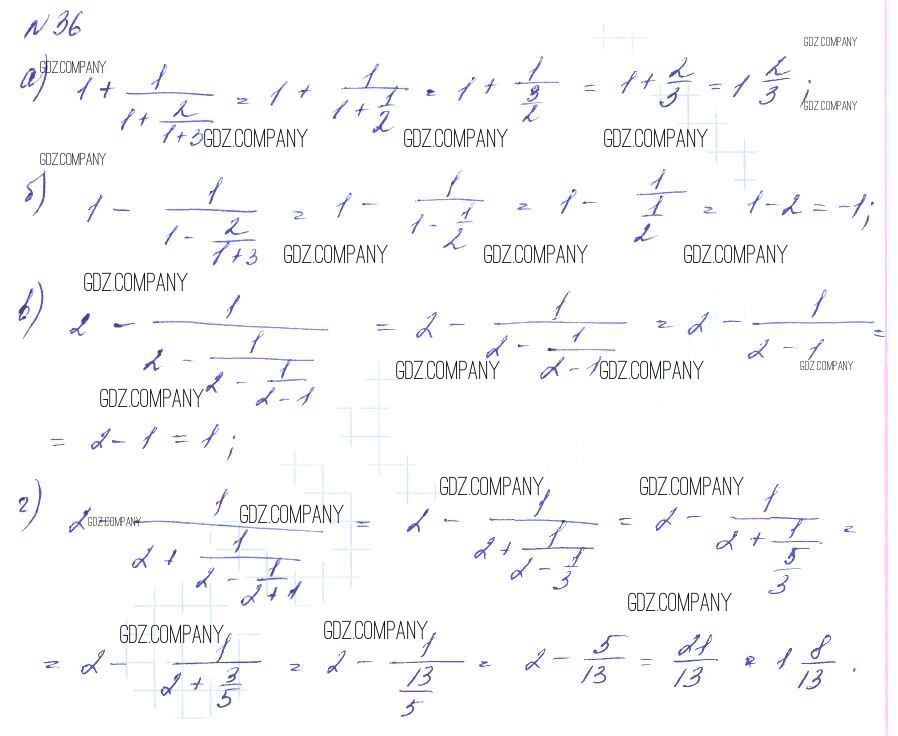 N 36
GDZ.COMPANY
GDZ.COMPANY
а) 1 + 1/(1 + 2/(1+3)) = 1 + 1/(1 + 1/2) = 1 + 1/(3/2) = 1 + 2/3 = 1 2/3 ;
GDZ.COMPANY
GDZ.COMPANY GDZ.COMPANY GDZ.COMPANY
GDZ.COMPANY
б) 1 - 1/(1 - 2/(1+3)) = 1 - 1/(1 - 1/2) = 1 - 1/(1/2) = 1 - 2 = -1;
GDZ.COMPANY GDZ.COMPANY GDZ.COMPANY
GDZ.COMPANY
в) 2 - 1/(2 - 1/(2 - 1/(2-1))) = 2 - 1/(2 - 1/(2-1)) = 2 - 1/(2 - 1) =
GDZ.COMPANY GDZ.COMPANY GDZ.COMPANY
GDZ.COMPANY
= 2 - 1 = 1 ;
GDZ.COMPANY GDZ.COMPANY
г) 2 - 1/(2 + 1/(2 - 1/(2+1))) = 2 - 1/(2 + 1/(2 - 1/3)) = 2 - 1/(2 + 1/(5/3)) =
GDZ.COMPANY GDZ.COMPANY
GDZ.COMPANY
GDZ.COMPANY GDZ.COMPANY
= 2 - 1/(2 + 3/5) = 2 - 1/(13/5) = 2 - 5/13 = 21/13 = 1 8/13 .